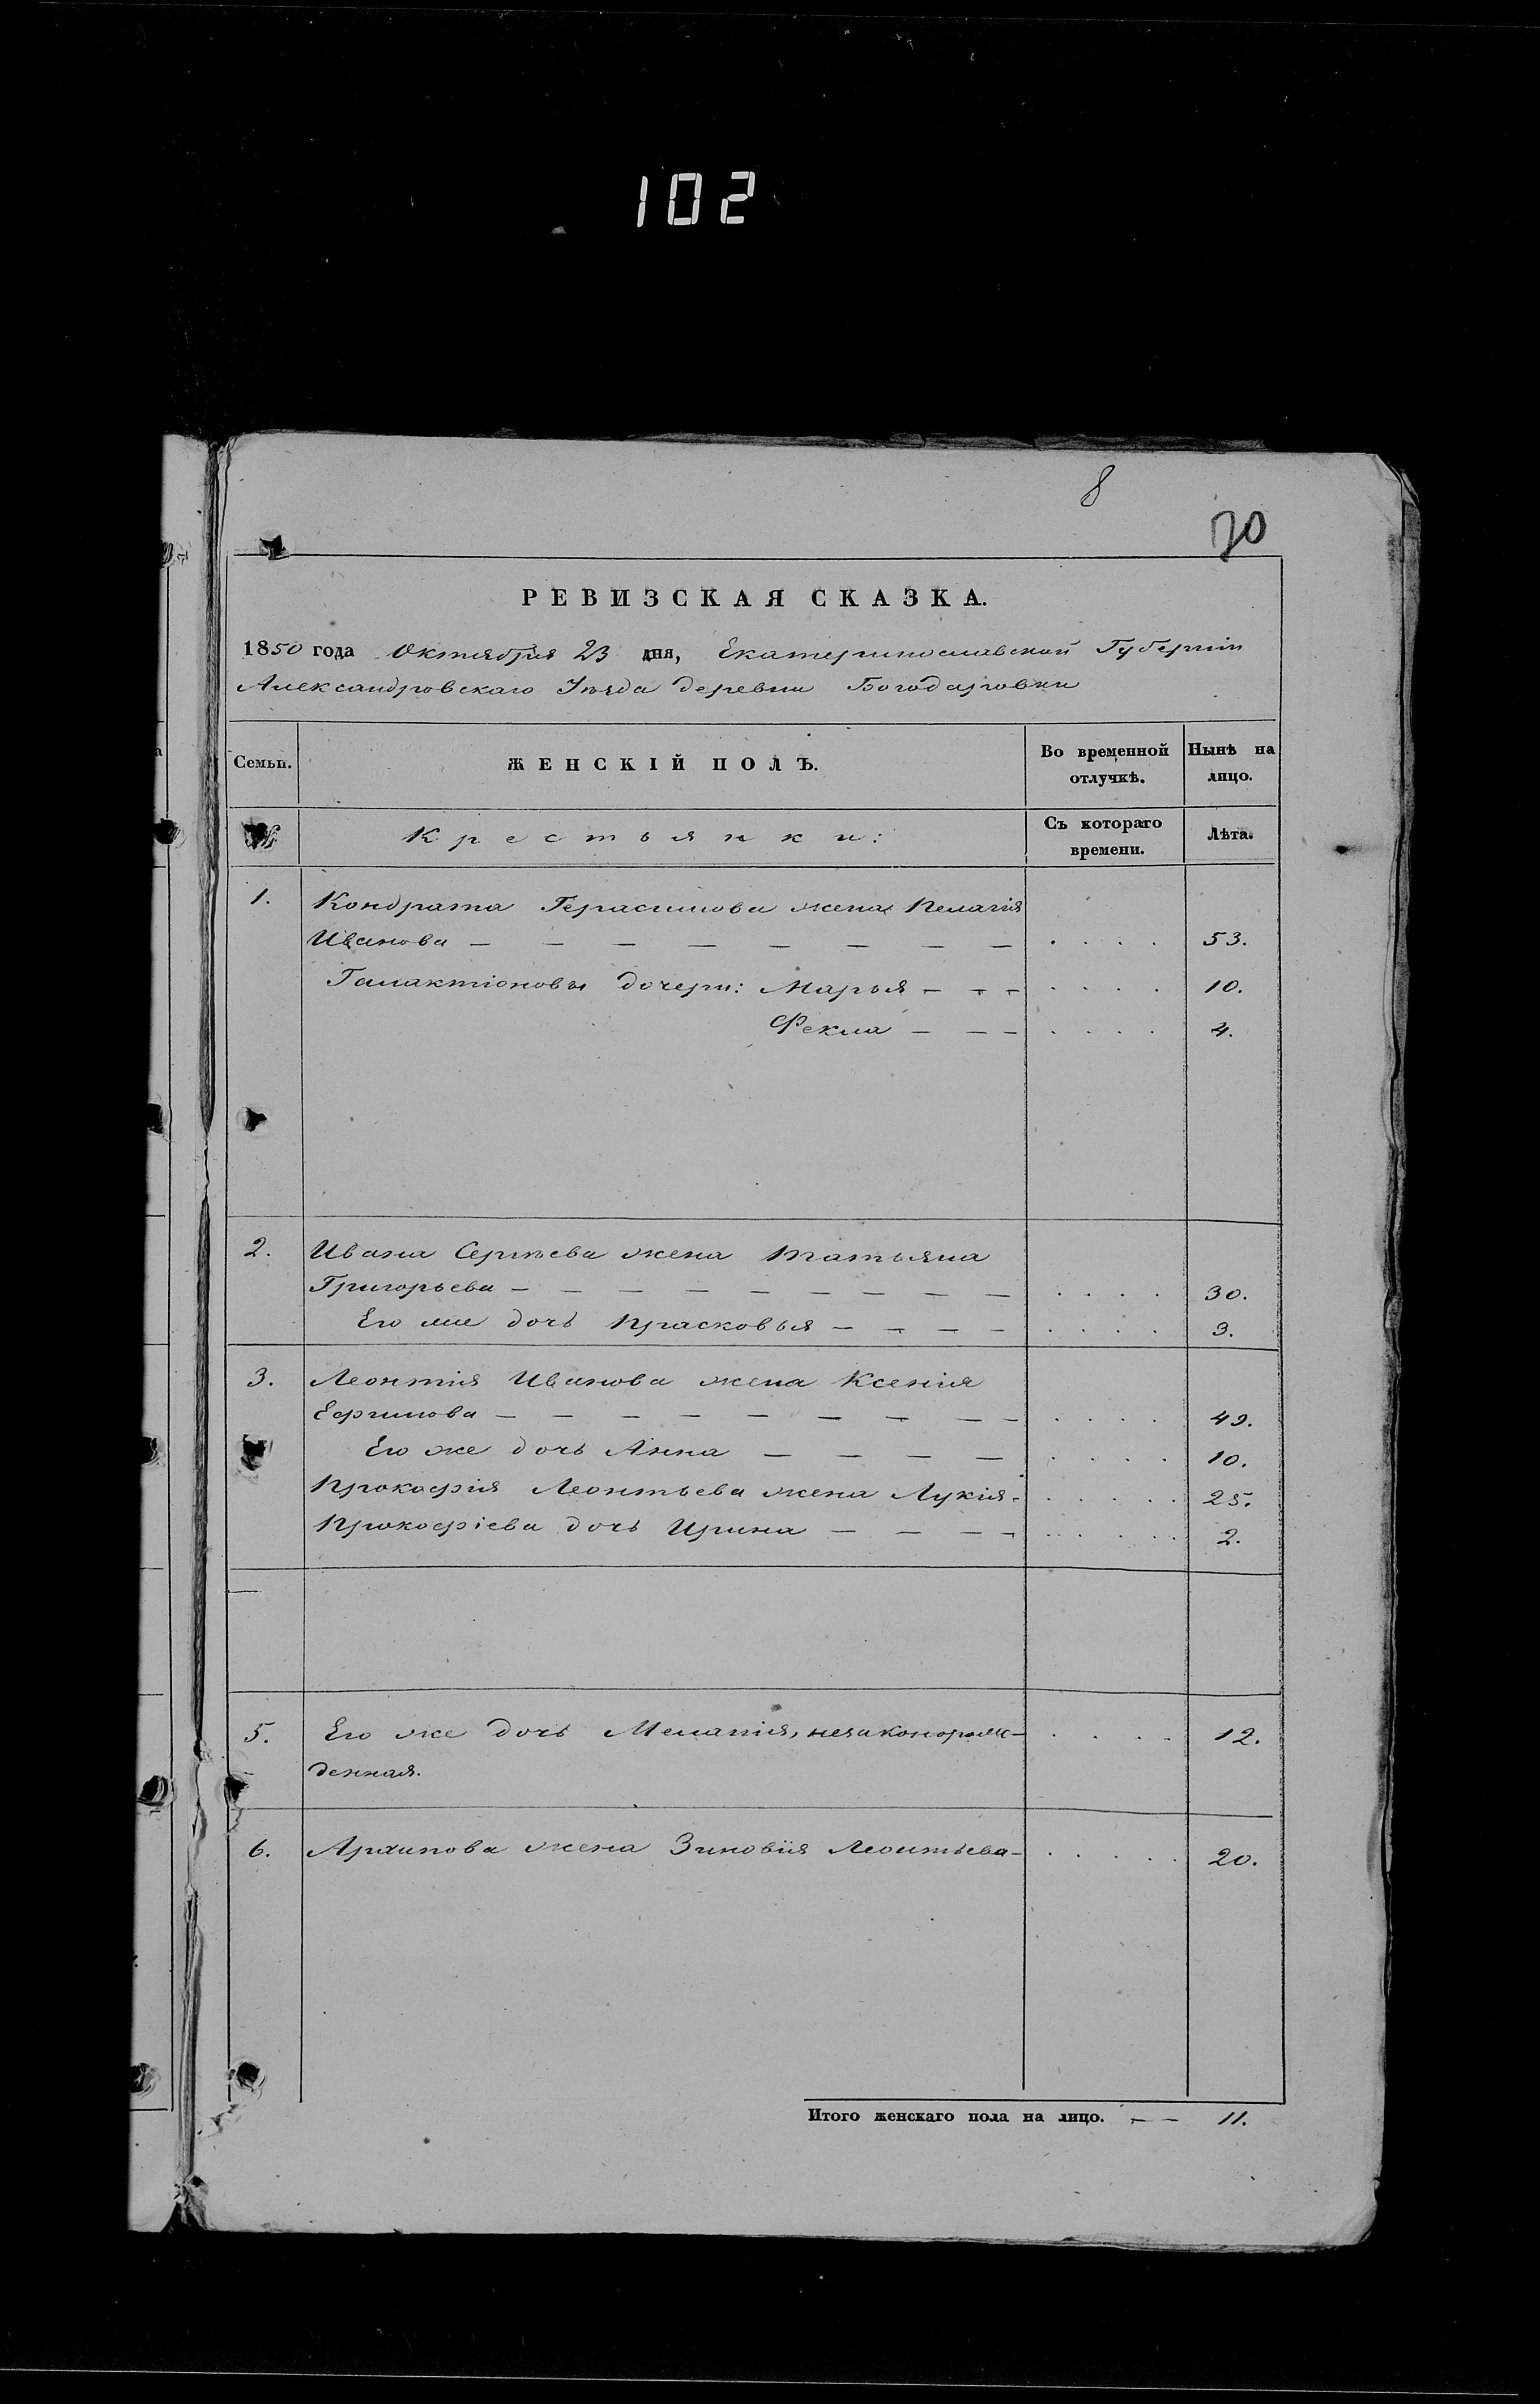 102
8
70
РЕВИЗСКАЯ СКАЗКА.
1850 года Октября 23 дня, Екатеринославской Губерніи
Александровскаго Уѣзда деревни Богодаровки
Семьи. ЖЕНСКІЙ ПОЛЪ. Во временной отлучкѣ. Нынѣ на лицо.
№ Крестьянки: Съ котораго времени. Лѣта.
1. Кондрата Герасимова жена Пелагія
Иванова — — — — — — — — . . . . 53.
Галактіоновы дочери: Марья — — — . . . . 10.
Фекла — — — . . . . 4.
2. Ивана Сергѣева жена Татьяна
Григорьева — — — — — — — — — . . . . 30.
Его же дочь Прасковья — — — — . . . . 3.
3. Леонтія Иванова жена Ксенія
Ефимова — — — — — — — — — . . . . 49.
Его же дочь Анна — — — — . . . . 10.
Прокофія Леонтьева жена Лукія - . . . . . 25.
Прокофіева дочь Ирина — — — — . . . . . 2.
5. Его же дочь Меланія, незаконорож- . . . . 12.
денная.
6. Архипова жена Зиновія Леонтьева - . . . . . 20.
Итого женскаго пола на лицо. — — 11.